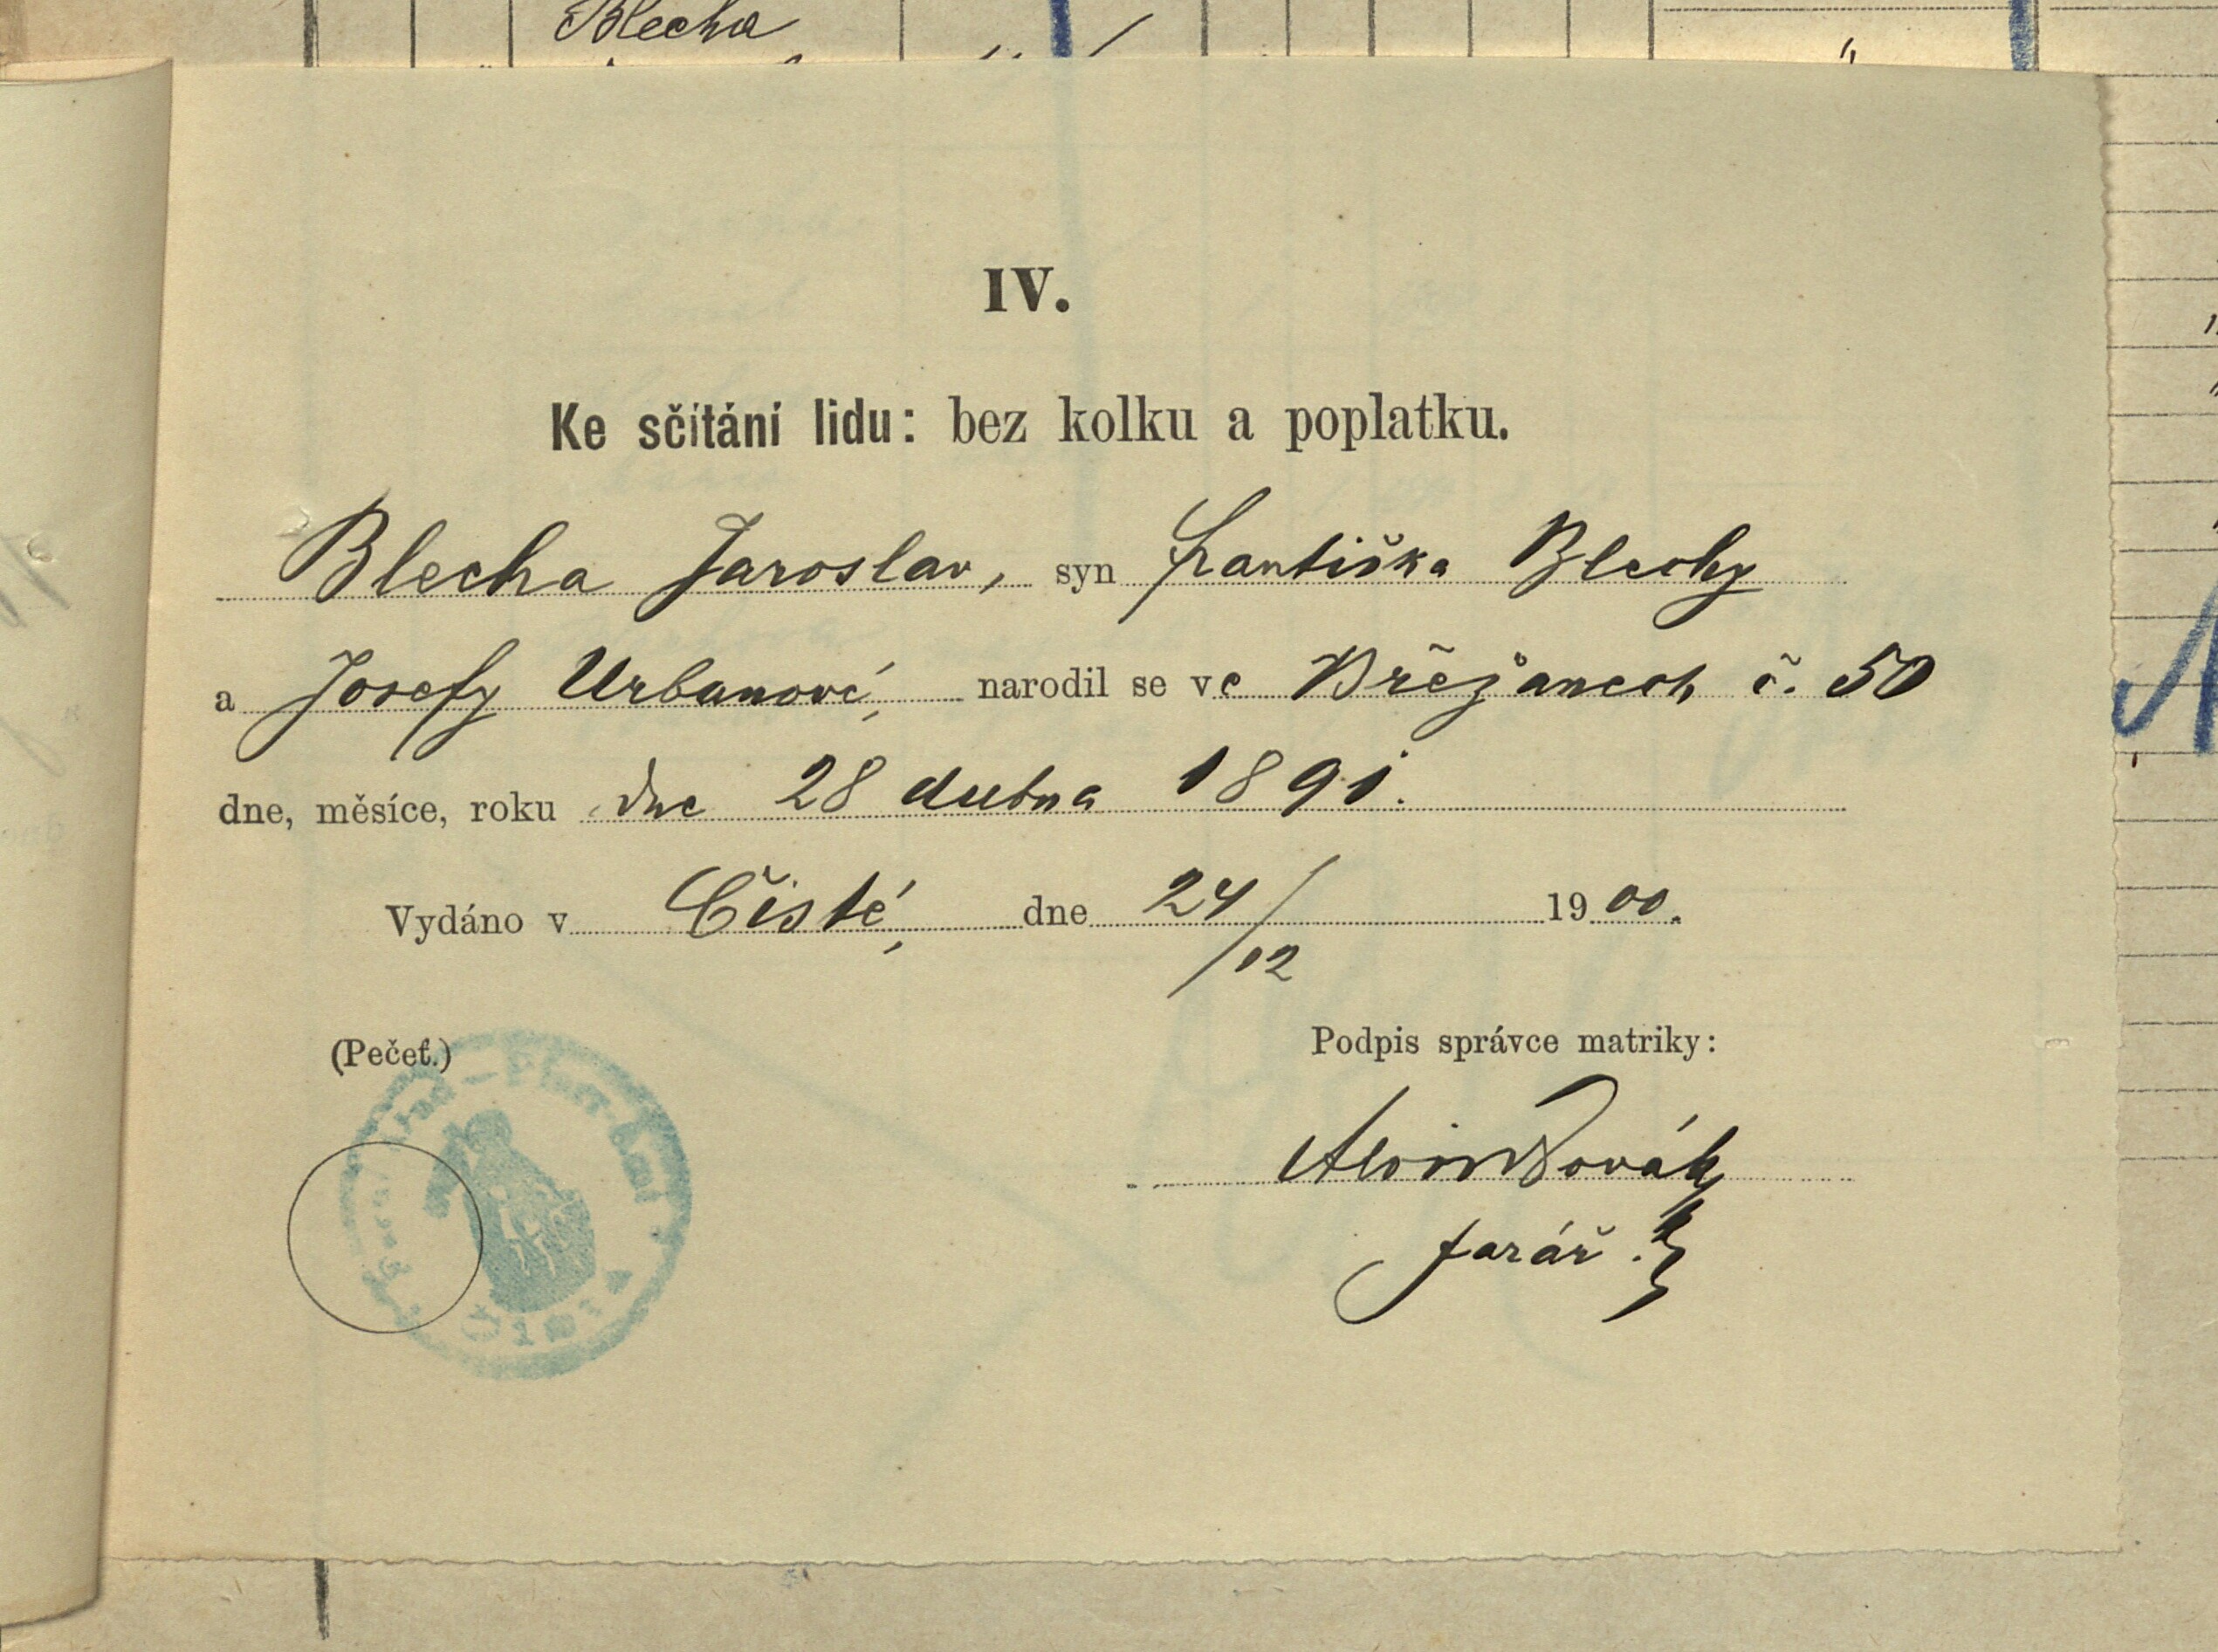 Blecha
IV.
Ke sčítání lidu: bez kolku a poplatku.
Blecha Jaroslav, syn Františka Blechy
a Josefy Urbanové, narodil se ve Břežanech č. 50
dne, měsíce, roku dne 28 dubna 1891.
Vydáno v Čisté, dne 24/12 1900.
(Pečeť.) Podpis správce matriky:
farář